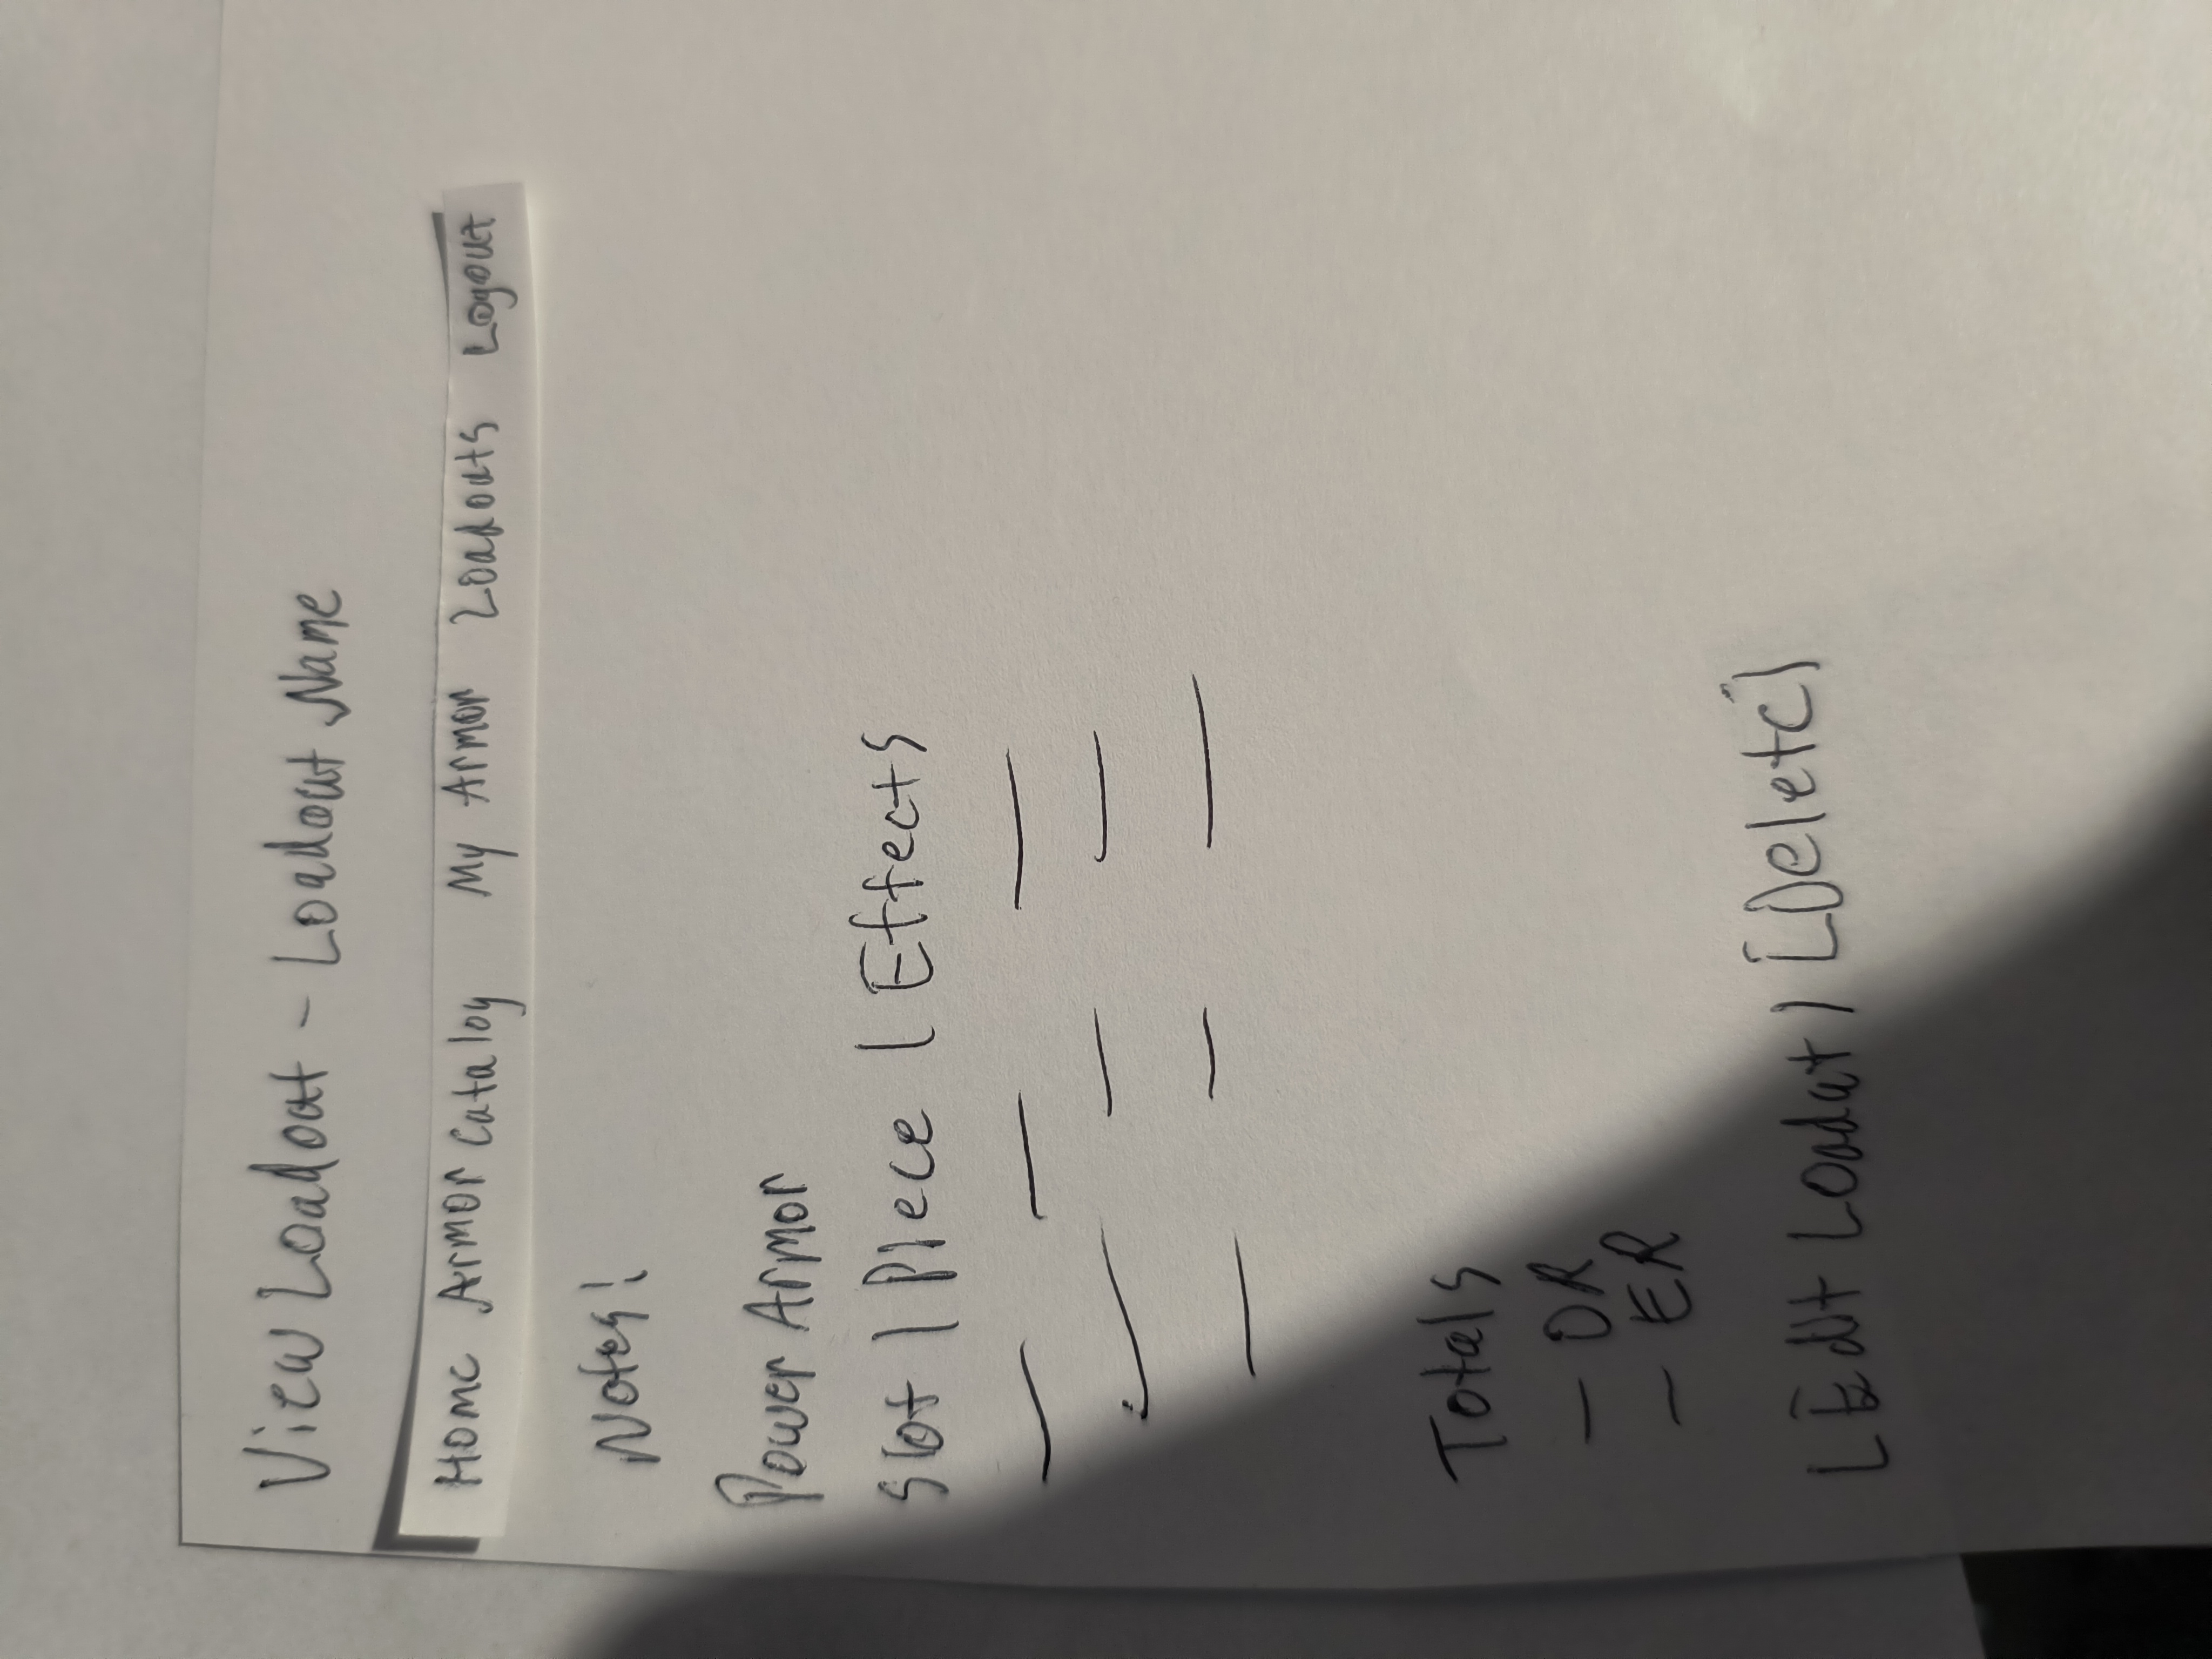 View Loadout - Loadout Name
Home Armor Catalog My Armor Loadouts Logout
Notes!
Power Armor
Slot | Piece | Effects
Totals
- DR
- ER
[Edit Loadut] [Delete]